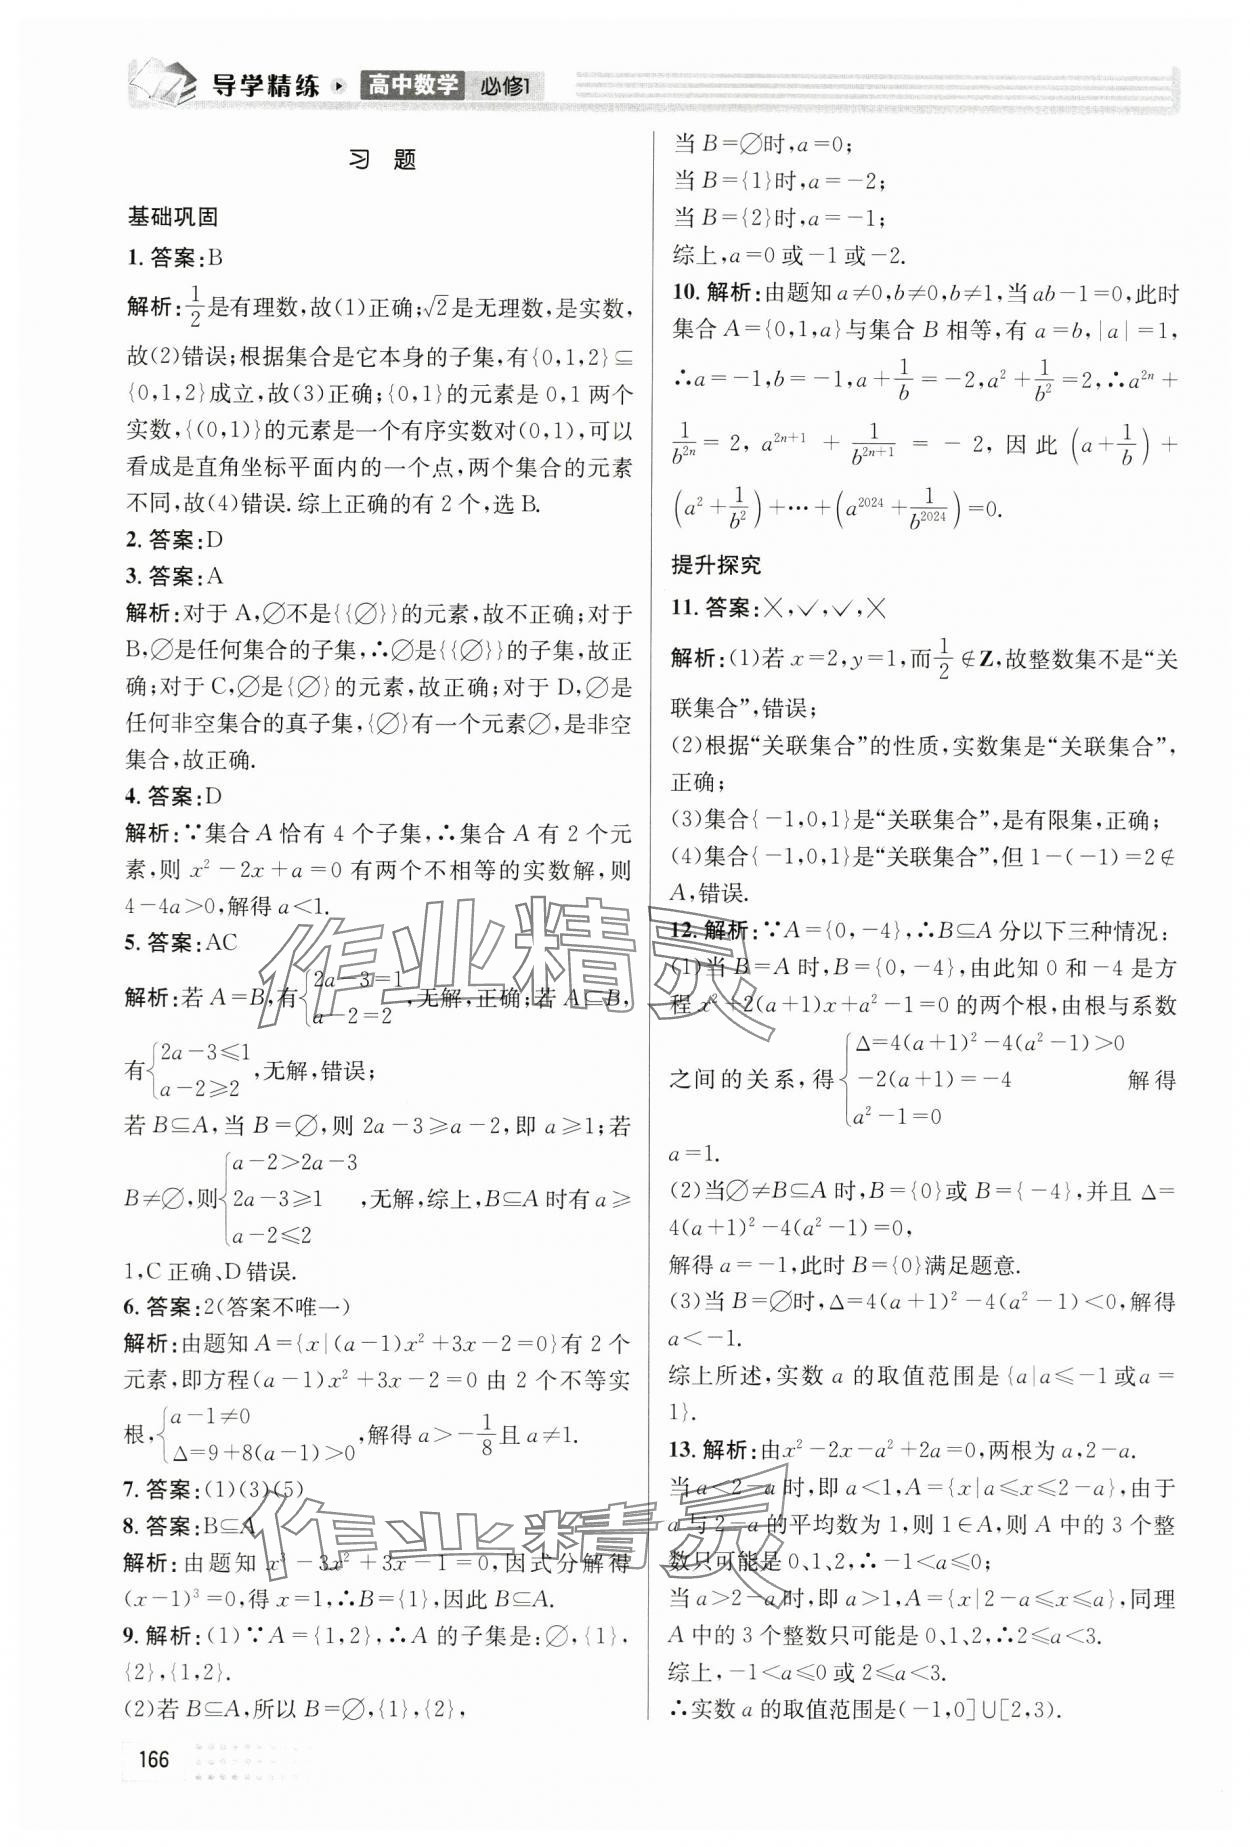 导学精练 高中数学 必修1
习 题
基础巩固
1. 答案:B
解析:1/2是有理数,故(1)正确;√2是无理数,是实数,
故(2)错误;根据集合是它本身的子集,有{0,1,2}⊆
{0,1,2}成立,故(3)正确;{0,1}的元素是 0,1 两个
实数,{(0,1)}的元素是一个有序实数对(0,1),可以
看成是直角坐标平面内的一个点,两个集合的元素
不同,故(4)错误. 综上正确的有 2 个,选 B.
2. 答案:D
3. 答案:A
解析:对于 A,∅不是{{∅}}的元素,故不正确;对于
B,∅是任何集合的子集,∴∅是{{∅}}的子集,故正
确;对于 C,∅是{∅}的元素,故正确;对于 D,∅是
任何非空集合的真子集,{∅}有一个元素∅,是非空
集合,故正确.
4. 答案:D
解析:∵集合 A 恰有 4 个子集,∴集合 A 有 2 个元
素,则 x²−2x+a=0 有两个不相等的实数解,则
4−4a>0,解得 a<1.
5. 答案:AC
解析:若 A=B,有{2a−3=1 a−2=2,无解,正确;若 A⊆B,
有{2a−3⩽1 a−2⩾2,无解,错误;
若 B⊆A,当 B=∅,则 2a−3⩾a−2,即 a⩾1;若
B≠∅,则{a−2>2a−3 2a−3⩾1 a−2⩽2,无解,综上,B⊆A 时有 a⩾
1,C 正确、D 错误.
6. 答案:2(答案不唯一)
解析:由题知 A={x|(a−1)x²+3x−2=0}有 2 个
元素,即方程(a−1)x²+3x−2=0 由 2 个不等实
根,{a−1≠0 Δ=9+8(a−1)>0,解得 a>−1/8且 a≠1.
7. 答案:(1)(3)(5)
8. 答案:B⊆A
解析:由题知 x³−3x²+3x−1=0,因式分解得
(x−1)³=0,得 x=1,∴B={1},因此 B⊆A.
9. 解析:(1)∵A={1,2},∴A 的子集是:∅,{1},
{2},{1,2}.
(2)若 B⊆A,所以 B=∅,{1},{2},
当 B=∅时,a=0;
当 B={1}时,a=−2;
当 B={2}时,a=−1;
综上,a=0 或−1 或−2.
10. 解析:由题知 a≠0,b≠0,b≠1,当 ab−1=0,此时
集合 A={0,1,a}与集合 B 相等,有 a=b,|a|=1,
∴a=−1,b=−1,a+1/b=−2,a²+1/b²=2,∴a²ⁿ+
1/b²ⁿ=2,a²ⁿ⁺¹+1/b²ⁿ⁺¹=−2,因此(a+1/b)+
(a²+1/b²)+⋯+(a²⁰²⁴+1/b²⁰²⁴)=0.
提升探究
11. 答案:×,✓,✓,×
解析:(1)若 x=2,y=1,而1/2∉Z,故整数集不是“关
联集合”,错误;
(2)根据“关联集合”的性质,实数集是“关联集合”,
正确;
(3)集合{−1,0,1}是“关联集合”,是有限集,正确;
(4)集合{−1,0,1}是“关联集合”,但 1−(−1)=2∉
A,错误.
12. 解析:∵A={0,−4},∴B⊆A 分以下三种情况:
(1)当 B=A 时,B={0,−4},由此知 0 和−4 是方
程 x²+2(a+1)x+a²−1=0 的两个根,由根与系数
之间的关系,得{Δ=4(a+1)²−4(a²−1)>0 −2(a+1)=−4 a²−1=0 解得
a=1.
(2)当∅≠B⊆A 时,B={0}或 B={−4},并且 Δ=
4(a+1)²−4(a²−1)=0,
解得 a=−1,此时 B={0}满足题意.
(3)当 B=∅时,Δ=4(a+1)²−4(a²−1)<0,解得
a<−1.
综上所述,实数 a 的取值范围是{a|a⩽−1 或a=
1}.
13. 解析:由x²−2x−a²+2a=0,两根为 a,2−a.
当 a<2−a 时,即 a<1,A={x|a⩽x⩽2−a},由于
a 与 2−a 的平均数为 1,则 1∈A,则 A 中的 3 个整
数只可能是 0、1、2,∴−1<a⩽0;
当 a>2−a 时,即 a>1,A={x|2−a⩽x⩽a},同理
A 中的 3 个整数只可能是 0、1、2,∴2⩽a<3.
综上,−1<a⩽0 或 2⩽a<3.
∴实数 a 的取值范围是(−1,0]∪[2,3).
166
作业精灵
作业精灵